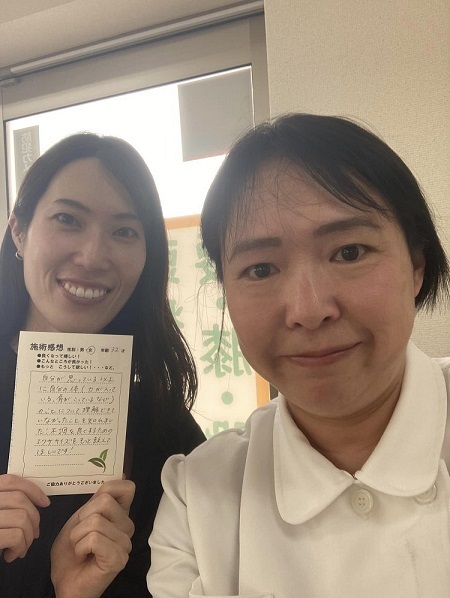 施術感想 性別:男・女 年齢 32 才
●良くなって嬉しい!
●こんなところが良かった!
●もっと こうして欲しい!・・・など。
自分が思っている以上
に自分の体(力が入って
いる、骨が
のことについて理解できて
いなかったことを知れまし
た!不調を良くするための
エクササイズをもっと教えて
ほしいです!
ご協力ありがとうございました
膝・